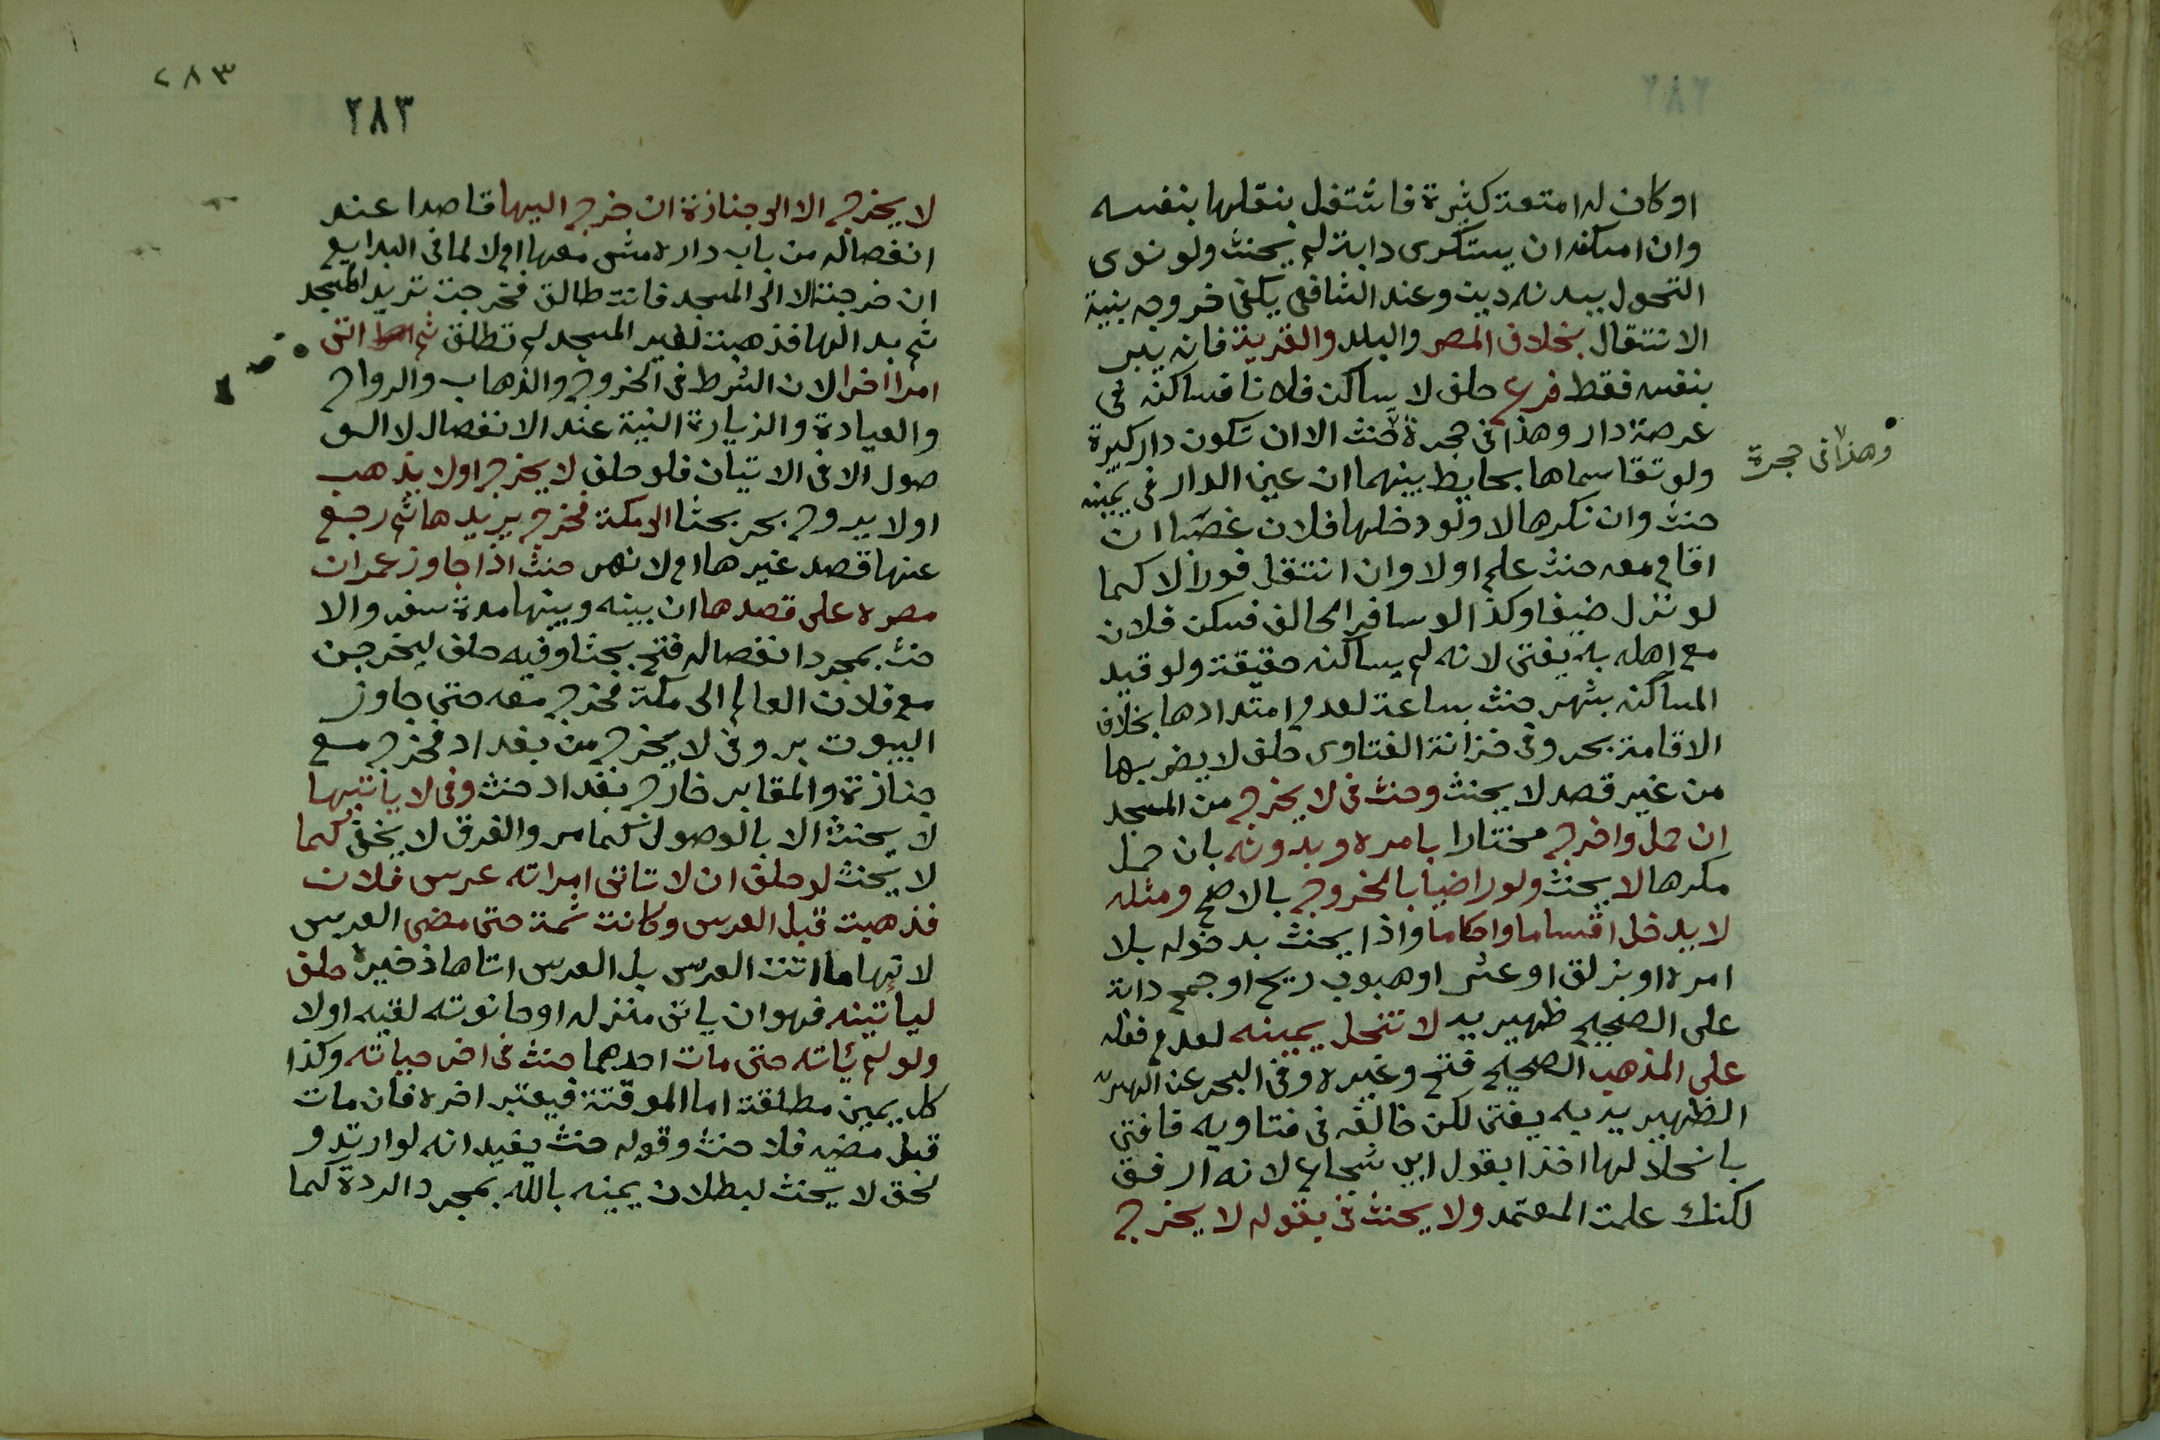 او كان له امتعة كثيرة فاشتغل بنقلها بنفسه
وان امكنه ان يستكرى دابة لم يحنث ولو نوى
التحول ببدنه دين وعند الشافعى يكفى خروجه بنية
الانتقال بخلاف المصر والبلد والقرية فانه يبر
بنفسه فقط فرع حلف لا يساكن فلانا فساكنه فى
عرصة دار وهذا فى حجرة حنث الا ان تكون دار كبيرة
وهذا فى حجرة
ولو تقاسماها بحايط بينهما ان عين الدار فى يمينه
حنث وان نكرها لا ولو دخلها فلان غصبا ان
اقام معه حنث علم او لا وان انتقل فورا لا كما
لو نزل ضيفا وكذا لو سافر الحالف فسكن فلان
مع اهله به يفتى لانه لم يساكنه حقيقة ولو قيد
المساكنه بشهر حنث بساعة لعدم امتدادها بخلاف
الاقامة بحر وفى خزانة الفتاوى حلف لا يضربها
من غير قصد لا يحنث وحنث فى لا يخرج من المسجد
ان حمل واخرج مختارا بامره وبدونه بان حمل
مكرها لا يحنث ولو راضيا بالخروج بالاصح ومثله
لا يدخل اقساما واحكاما واذا يحنث بدخوله بلا
امره او بزلق او عثر او هبوب ريح او جمح دابة
على الصحيح ظهيريه لا تنحل يمينه لعدم فعله
على المذهب الصحيح فتح وغيره وفى البحر عن
الظهيريه به يفتى لكن خالفه فى فتاويه فافتى
بانحلالها اخذا بقول ابى شجاع لانه ارفق
لكنك علمت المعتمد ولا يحنث فى بقوله لا يخرج
٢٨٣
٢٨٣
لا يخرج الا الى جنازة ان خرج اليها قاصدا عند
انفصاله من باب داره مشى معها ام لا لما فى البدايع
ان خرجت الا الى المسجد فانت طالق فخرجت تريد المسجد
ثم بدا لها فذهبت لغير المسجد لم تطلق ثم اتى
امرا اخرا لان الشرط فى الخروج والذهاب والرواح
والعيادة والزيارة النية عند الانفصال لا الو
صول الا فى الاتيان فلو حلف لا يخرج او لا يذهب
او لا يروح بحر بحثا الى مكة فخرج يريدها ثم رجع
عنها قصد غيرها ام لا نهر حنث اذا جاوز عمران
مصره على قصدها ان بينه وبينها مدة سفر والا
حنث بمجرد انفصاله فتح بحثا وفيه حلف ليخرجن
مع فلان العام الى مكة فخرج معه حتى جاوز
البيوت بر وفى لا يخرج من بغداد فخرج مع
جنازة والمقابر خارج بغداد حنث وفى لا ياتيها
لا يحنث الا بالوصول كما مر والفرق لا يخفى كما
لا يحنث لو حلف ان لا تاتى امراته عرس فلان
فذهبت قبل العرس وكانت ثمة حتى مضى العرس
لانها ما اتت العرس بل العرس اتاها ذخيرة حلف
لياتينه فهو ان ياتى منزله او حانوته لقيه او لا
ولو لم يئاته حتى مات احدهما حنث فى اخر حياته وكذا
كل يمين مطلقة اما الموقتة فيعتبر اخره فان مات
قبل مضيه فلا حنث وقوله حنث يفيد انه لو ارتد و
لحق لا يحنث لبطلان يمينه بالله بمجرد الردة كما